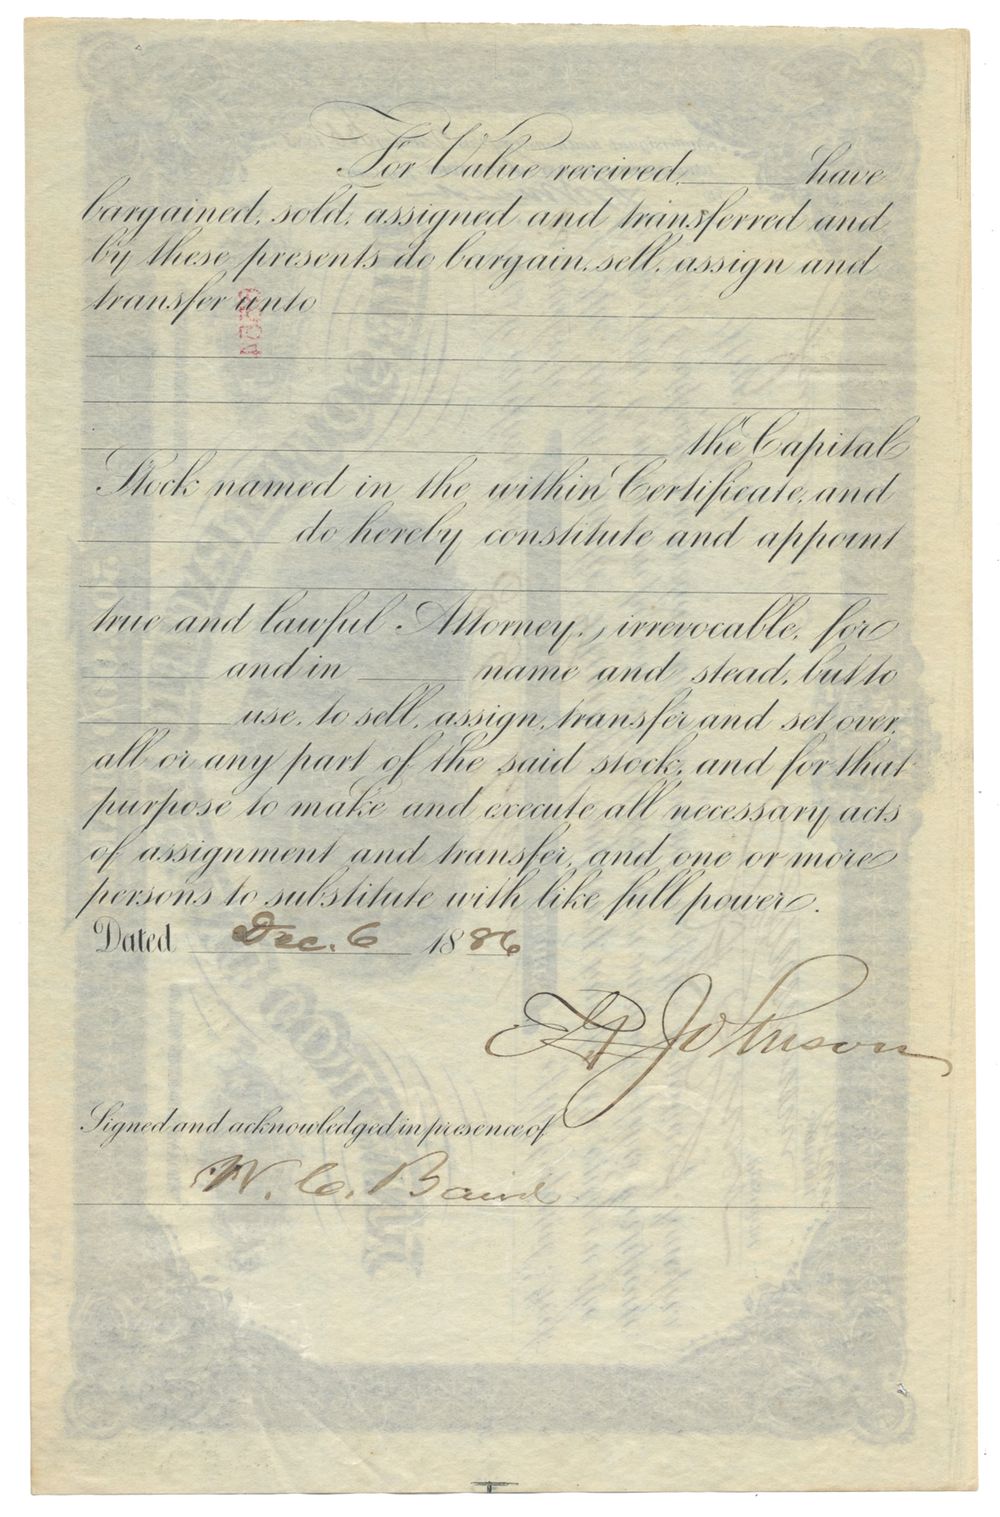 For Value received, ______ have
bargained, sold, assigned and transferred and
by these presents do bargain, sell, assign and
transfer unto
the Capital
Stock named in the within Certificate, and
______ do hereby constitute and appoint
true and lawful Attorney, irrevocable, for
______ and in ______ name and stead, but to
______ use, to sell, assign, transfer and set over,
all or any part of the said stock, and for that
purpose to make and execute all necessary acts
of assignment and transfer, and one or more
persons to substitute with like full power.
Dated Dec. 6 1886
Johnson
Signed and acknowledged in presence of
W. C. Baird